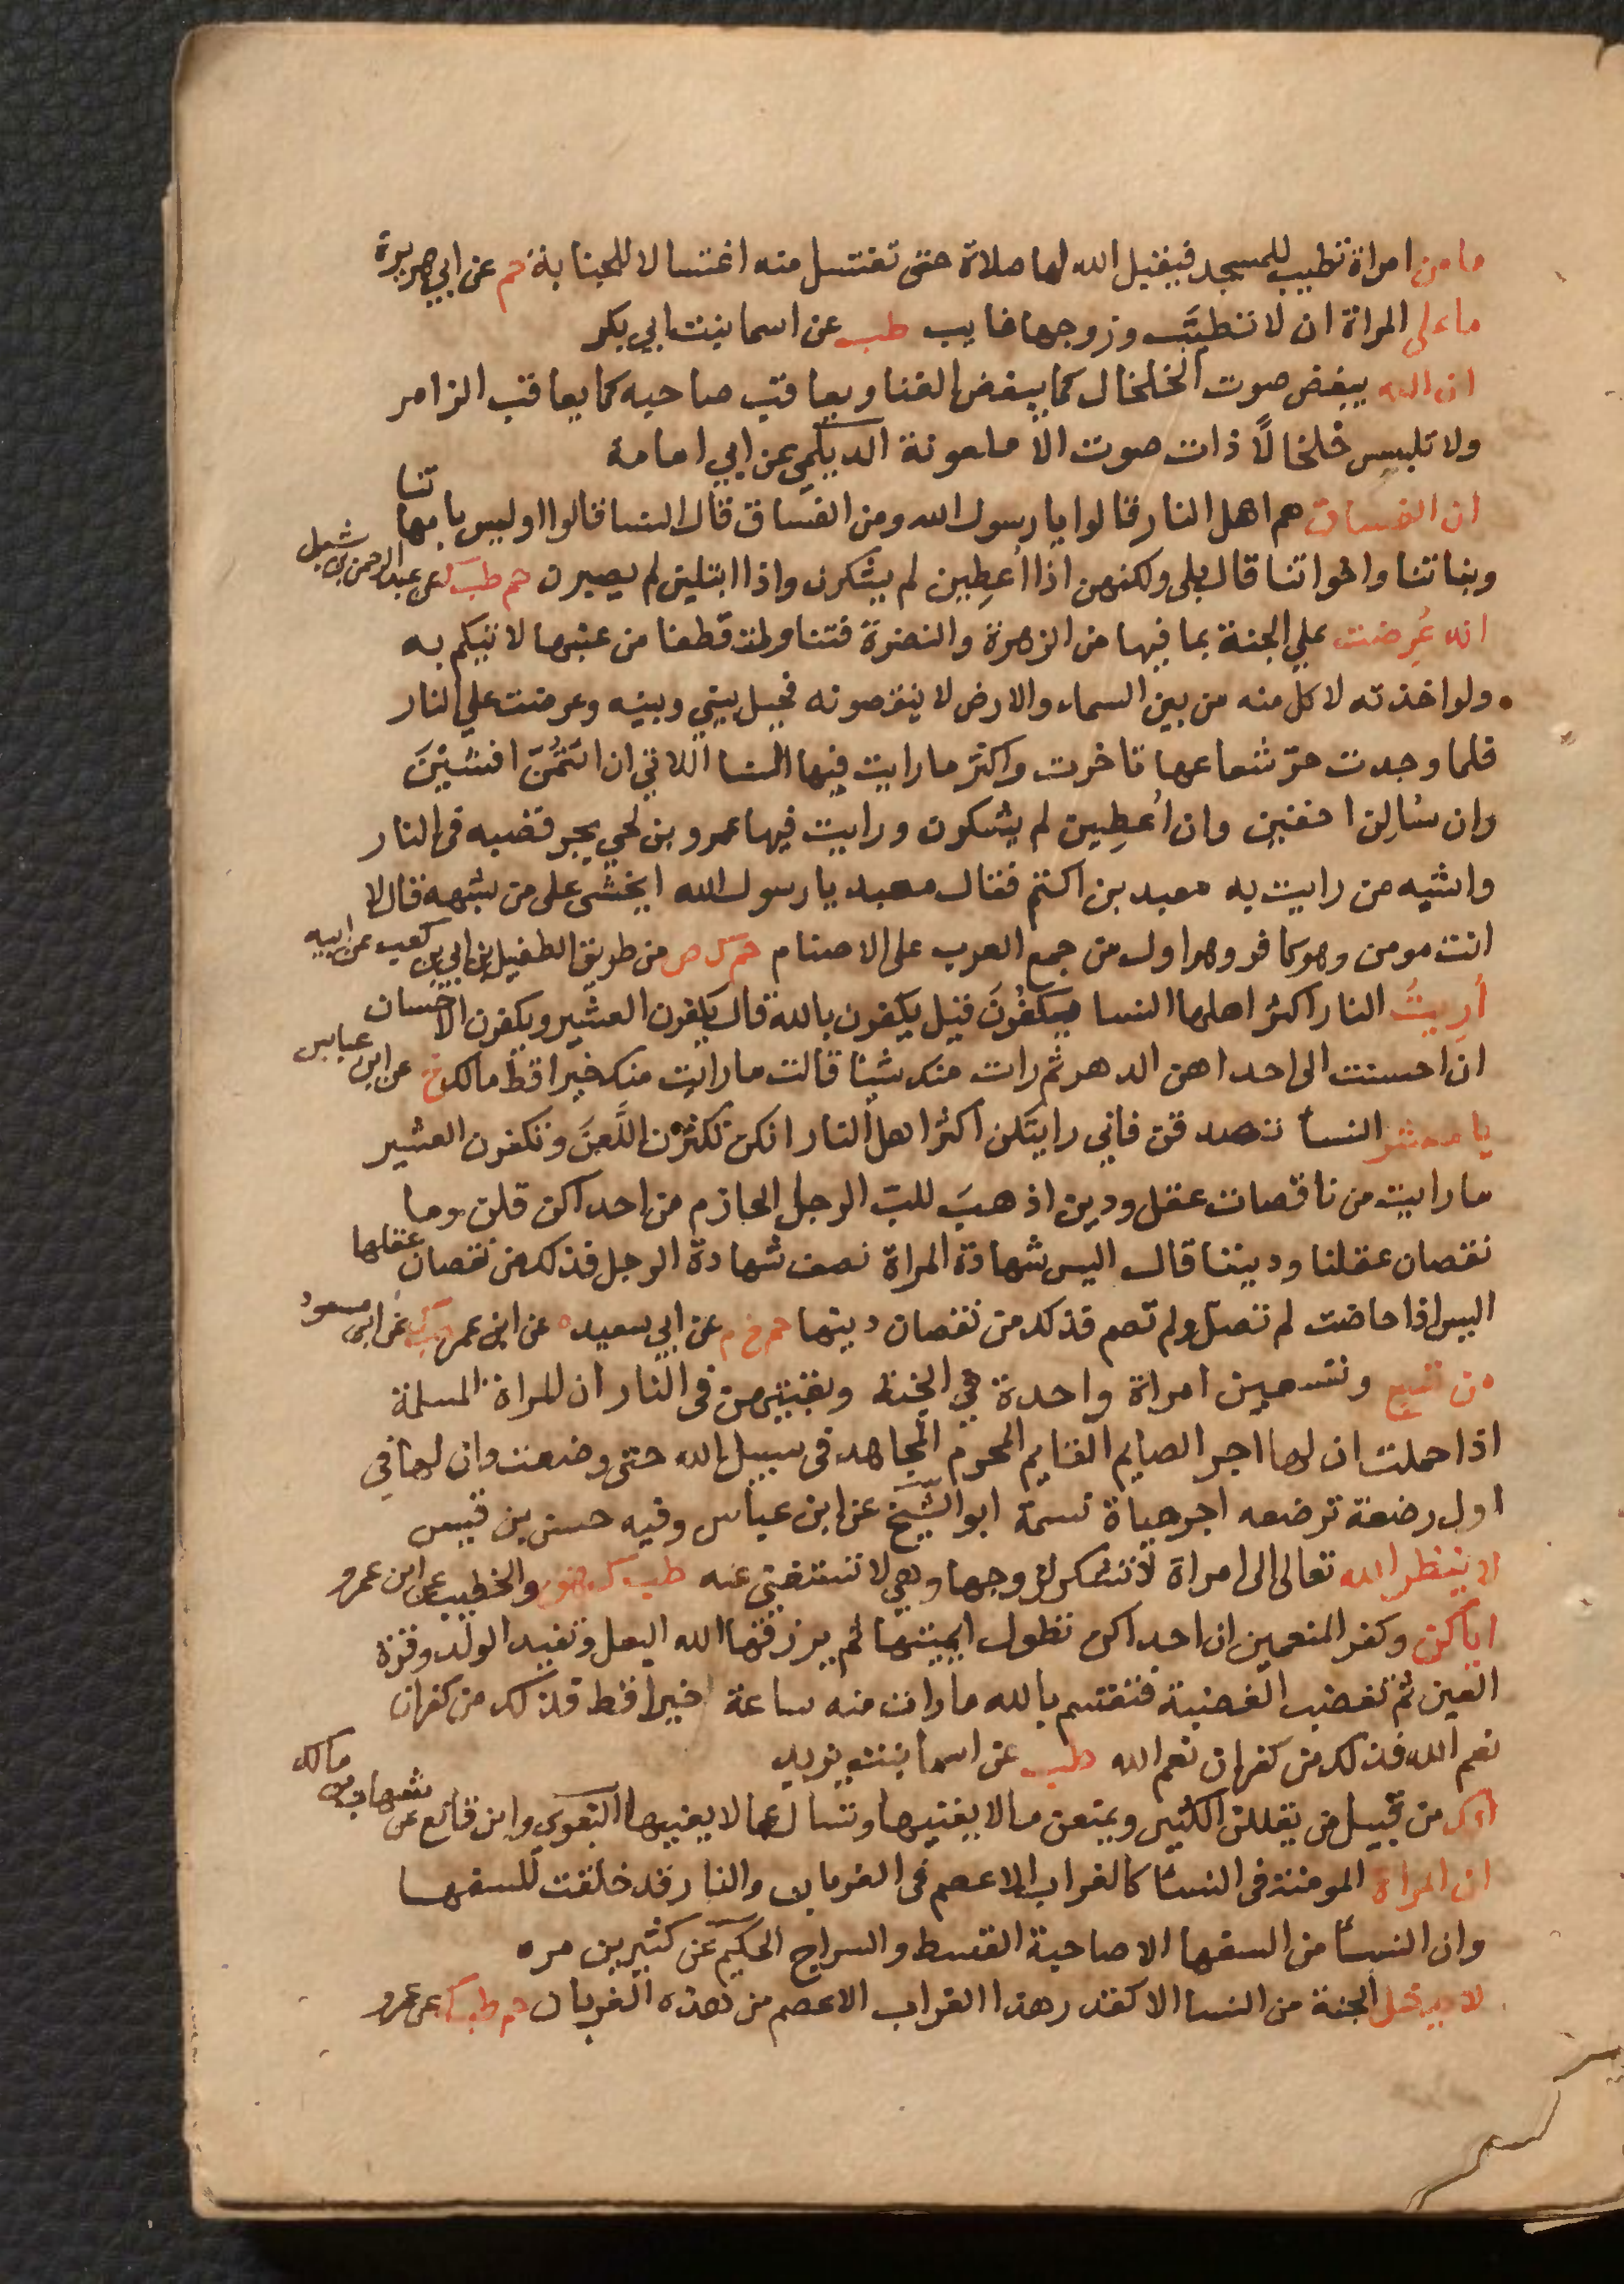 ما من امراة تطيب للمسجد فيقبل الله لها صلاة حتى تغتسل منه اغتسالا للجنابة حم عن ابي هريرة
ما على المراة ان لا تتطيب وزوجها غايب طب عن اسما بنت ابي بكر
ان الله يبغض صوت الخلخال كما يبغض الغنا ويعاقب صاحبه كما يعاقب الزامر
ولا تلبس خلخالاً ذات صوت الا ملعونة الديلمي عن ابي امامة
ان الفساق هم اهل النار قالوا يا رسول الله ومن الفساق قال النسا قالوا اوليس بامهاتنا
وبناتنا واخواتنا قال بلى ولكنهن اذا اُعطِين لم يشكرن واذا ابتلين لم يصبرن حم طب ك عن عبد الرحمن بن شبل
انه عُرِضت علي الجنة بما فيها من الزهرة والنضرة فتناولت قطفا من عنبها لاتيكم به
ولو اخذته لاكل منه من بين السماء والارض لا ينقصونه فحيل بيني وبينه وعرضت علي النار
فلما وجدت حرّ شعاعها تاخرت واكثر ما رايت فيها النسا اللاتي ان ائتمُنّ افشَيْنَ
وان سُالن احفين وان اُعطِين لم يشكرن ورايت فيها عمرو بن لحي يجر قصبه في النار
واشبه من رايت به معبد بن اكثم فقال معبد يا رسول الله ايخشى علي من شبهه قال لا
انت مومن وهو كافر وهو اول من جمع العرب على الاصنام حم ك ص من طريق الطفيل بن ابي بن كعب عن ابيه
اُرِيتُ النار اكثر اهلها النسا يكفُرنَ قيل يكفرن بالله قال يكفرن العشير ويكفرن الاحسان
ان احسنت الى احداهن الدهر ثم رات منك شيئا قالت ما رايت منك خيرا قط مالك خ عن ابن عباس
يا معشر النسأ تصدقن فاني رايتكن اكثر اهل النار انكن تكثرن اللَّعنَ وتكفرن العشير
ما رايت من ناقصات عقل ودين اذهبَ للبّ الرجل الحازم من احداكن قلن وما
نقصان عقلنا وديننا قال اليس شهادة المراة نصف شهادة الرجل فذلك من نقصان عقلها
اليس اذا حاضت لم تصل ولم تصم فذلك من نقصان دينها حم خ م عن ابي سعيد ه عن ابن عمر عن ابن مسعود
من تسع وتسعين امراة واحدة في الجنة وبقيتهن في النار ان للمراة المسلمة
اذا حملت ان لها اجر الصايم القايم المحرم المجاهد في سبيل الله حتى وضعت وان لها في
اول رضعة ترضعه اجر حياة نسمة ابو الشيخ عن ابن عباس وفيه حسن بن قيس
لا ينظر الله تعالى الى امراة لا تشكر لزوجها وهي لا تستغني عنه طب ك هق والخطيب عن ابن عمرو
اياكن وكفر المنعمين ان احداكن تطول ايمتها ثم يرزقها الله البعل وتفيد الولد وقرة
العين ثم تغضب الغضبة فتقسم بالله ما رات منه ساعة خيرا قط فذلك من كفران
نعم الله فذلك من كفران نعم الله طب عن اسما بنت يزيد
من قبيل من يقللن الكثير ويمنعن ما لا يغنيها وتسال عما لا يعنيها البغوي وابن قانع عن شهاب بن مالك
ان المراة المومنة في النسأ كالغراب الاعصم في الغربان والنار قد خلقت للسفها
وان النسأ من السفها الا صاحبة القسط والسراج الحكيم عن كثير بن مره
لا يدخل الجنة من النسا الا كقدر هذا الغراب الاعصم من هذه الغربان حم طب ك عن عمرو